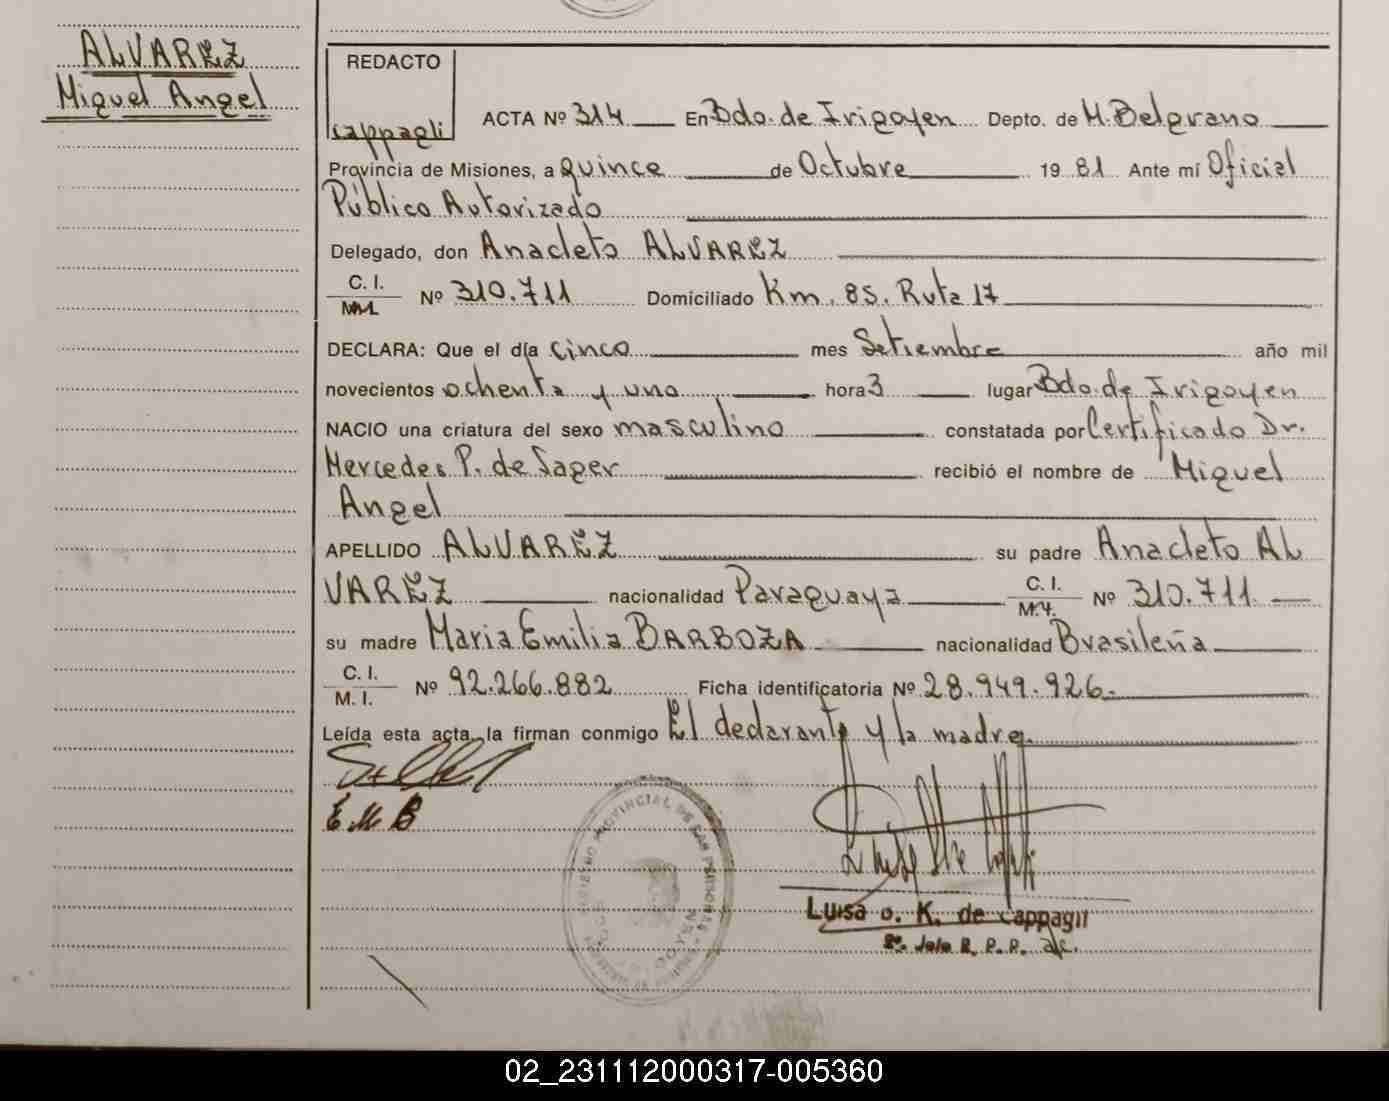 ALVAREZ
Miguel Angel
REDACTO
Cappagli
ACTA Nº 314 En Bdo. de Irigoyen Depto. de M. Belgrano
Provincia de Misiones, a quince de Octubre 19 81 Ante mí Oficial
Público Autorizado
Delegado, don Anacleto ALVAREZ
C. I. Nº 310.711 Domiciliado Km. 85. Ruta 17
DECLARA: Que el día cinco mes Setiembre año mil
novecientos ochenta y uno hora 3 lugar Bdo. de Irigoyen
NACIO una criatura del sexo masculino constatada por Certificado Dr.
Mercedes P. de Sager recibió el nombre de Miguel
Angel
APELLIDO ALVAREZ su padre Anacleto AL
VAREZ nacionalidad Paraguaya C. I. Nº 310.711
su madre Maria Emilia BARBOZA nacionalidad Brasileña
C. I. M. I. Nº 92.266.882 Ficha identificatoria Nº 28.949.926.
Leída esta acta, la firman conmigo El declarante y la madre.
E M B
Luisa o. K. de Cappagli
02_231112000317-005360